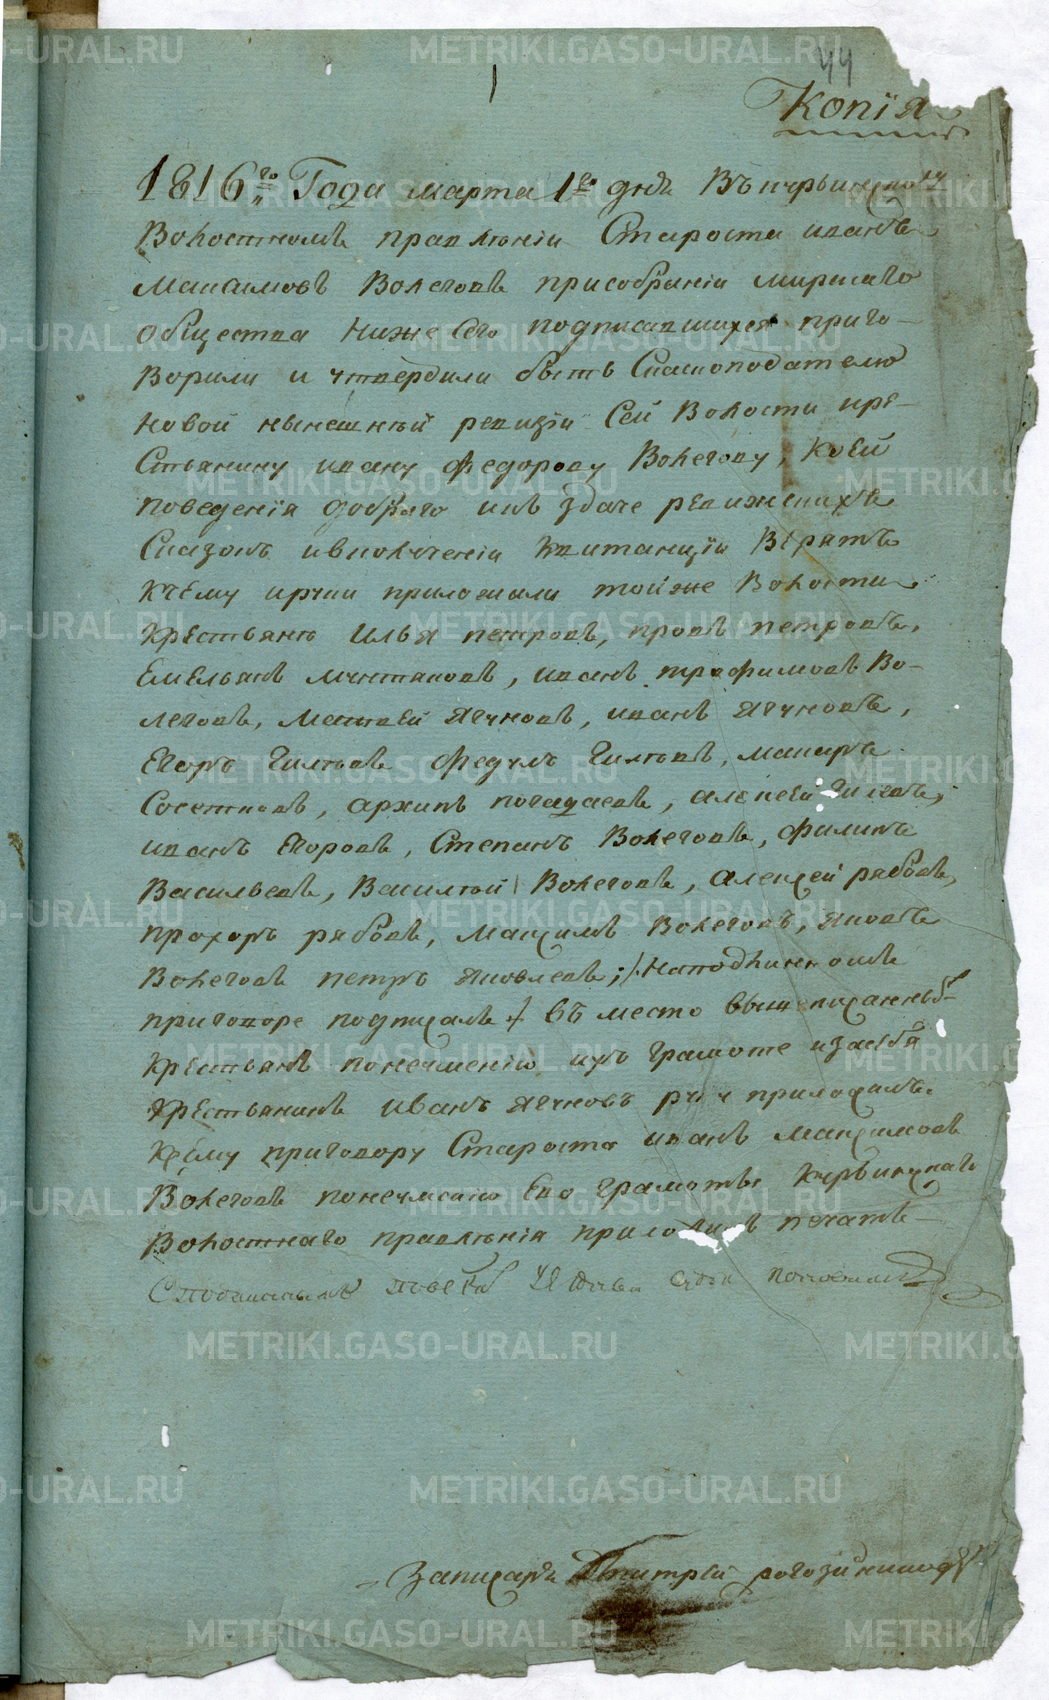 44
1
Копїя
1816го Года марта 1го дня Въ
Волостномъ правленіи Староста иванъ
Максимовъ Волеговъ присобраніи мирскаго
общества ниже сего подписавшихся приго-
ворили и утвердили быть Сказкоподателю
новой нынешней ревизіи Сей Волости кре-
стьянину ивану федорову Волегову, коей
поведенія добраго инъ здаче ревижскихъ
Сказокъ ивполученіи квитанціи Верятъ
кчему ируки приложили тойже Волости
Крестьяне Илья петровъ, провъ петровъ,
Емельянъ, иванъ трофимовъ Во-
леговъ, Матвей Ягуновъ, иванъ Ягуновъ,
Егоръ Гилевъ федулъ Гилевъ, макаръ
архипъ алексей Гилевъ,
иванъ Егоровъ, Степанъ Волеговъ, филипъ
Васильевъ, Василей Волеговъ, алексей рябовъ,
прохоръ рябовъ, Максимъ Волеговъ, яковъ
Волеговъ петръ яковлевъ; наподлинномъ
приговоре подписалъ въ место вышеписанныхъ
крестьянъ понеумению ихъ грамоте изасебя
крестьянинъ иванъ ягуновъ руку приложилъ.
Ксему приговору Староста иванъ максимовъ
Волеговъ понеумению Ево грамоты
Волостнаго правленія приложилъ печать
Сподлиннымъ
Записаръ Дмитрей рогозинниковъ
METRIKI.GASO-URAL.RU